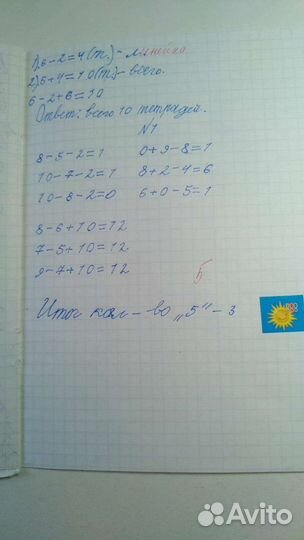 1) 6-2=4(т.) - линейка.
2) 6+4=10(т) - всего.
6-2+6=10
Ответ: всего 10 тетрадей.
N1
8-5-2=1 0+9-8=1
10-7-2=1 8+2-4=6
10-8-2=0 6+0-5=1
8-6+10=12
7-5+10=12
9-7+10=12
5
Итог кол-во „5“ - 3
Avito